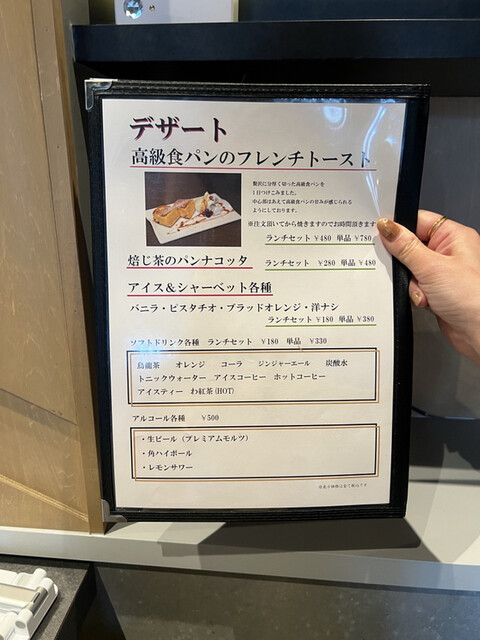 デザート
高級食パンのフレンチトースト
贅沢に分厚く切った高級食パンを
1日つけこみました。
中心部はあえて高級食パンの甘みが感じられる
ようにしております。
※注文頂いてから焼きますのでお時間頂きます
ランチセット ¥480 単品 ¥780
焙じ茶のパンナコッタ ランチセット ¥280 単品 ¥480
アイス&シャーベット各種
バニラ・ピスタチオ・ブラッドオレンジ・洋ナシ
ランチセット ¥180 単品 ¥380
ソフトドリンク各種 ランチセット ¥180 単品 ¥330
烏龍茶 オレンジ コーラ ジンジャーエール 炭酸水
トニックウォーター アイスコーヒー ホットコーヒー
アイスティー わ紅茶(HOT)
アルコール各種 ¥500
・生ビール(プレミアムモルツ)
・角ハイボール
・レモンサワー